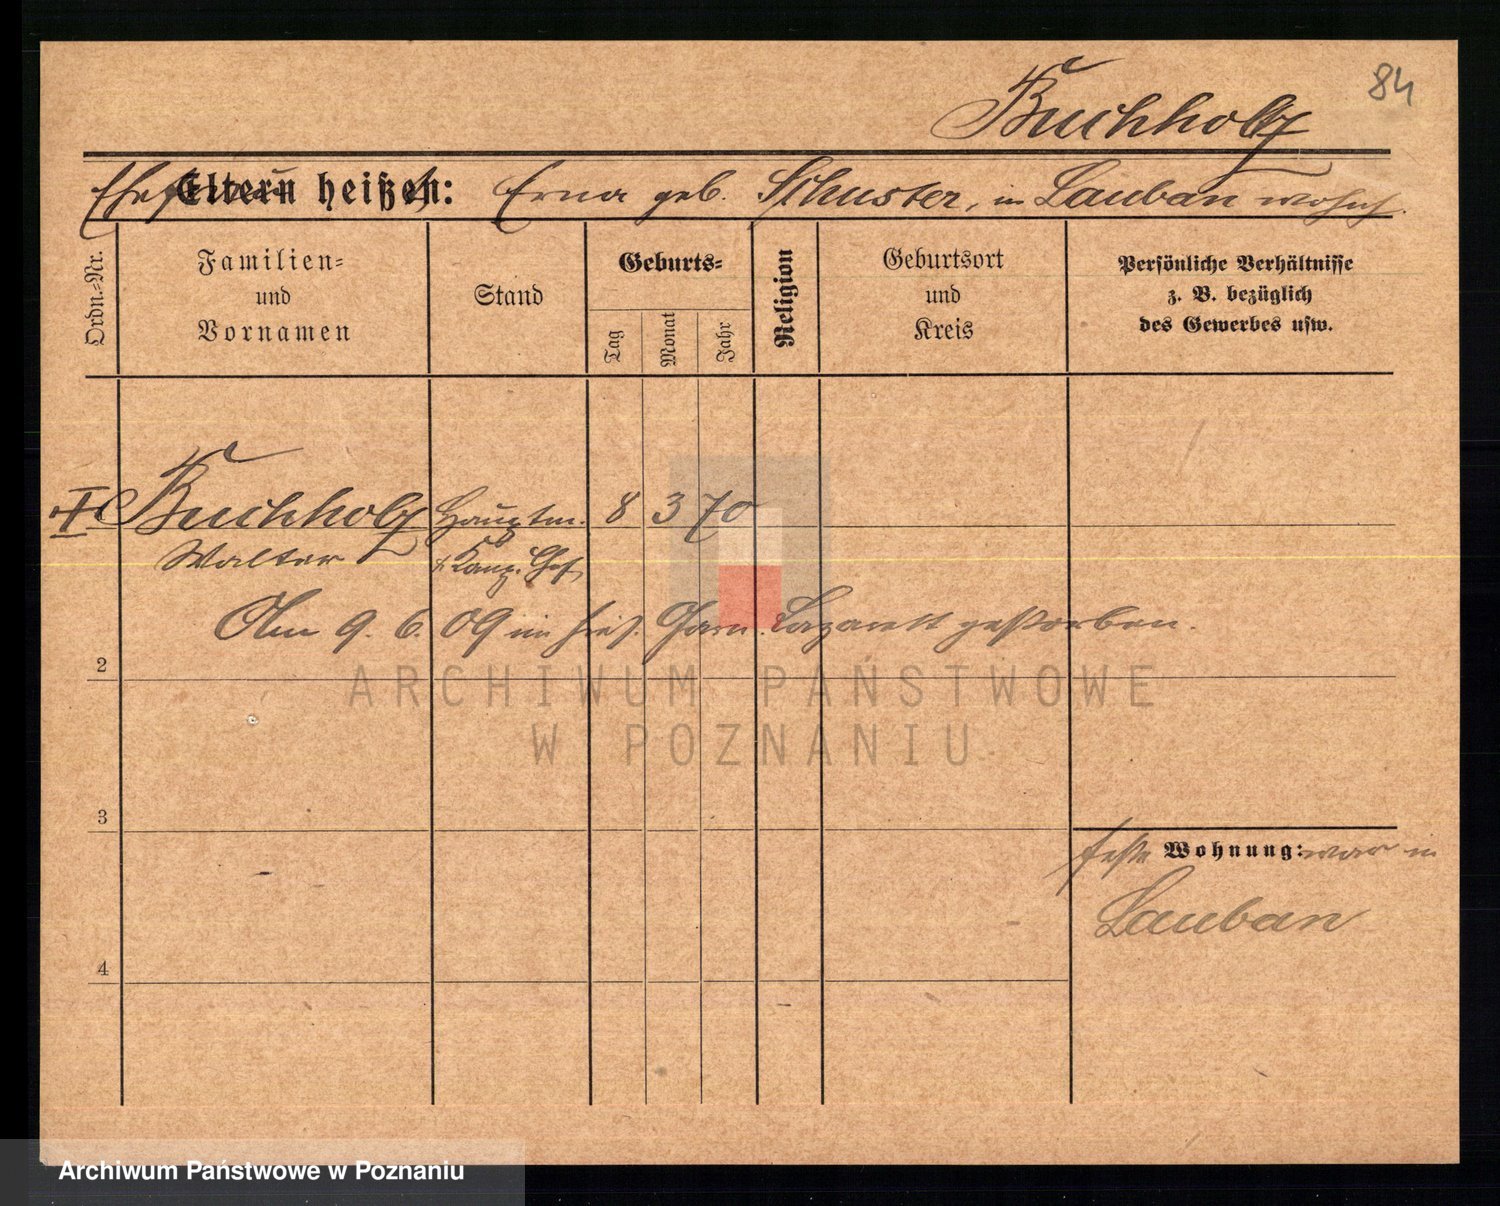 84
Buchholz
Ehefrau Eltern heißen: Erna geb. Schuster, in Lauban wohnh.
Ordn.-Nr.
Familien-
und
Vornamen
Stand
Geburts-
Tag
Monat
Jahr
Religion
Geburtsort
und
Kreis
Persönliche Verhältnisse
z. B. bezüglich
des Gewerbes usw.
Buchholz Hauptm. 8 3 70
Walter u. Komp. Chef
Am 9. 6. 09 im hies. Garn. Lazarett gestorben.
2
ARCHIWUM PAŃSTWOWE
W POZNANIU
3
feste Wohnung: war in
Lauban
4
Archiwum Państwowe w Poznaniu